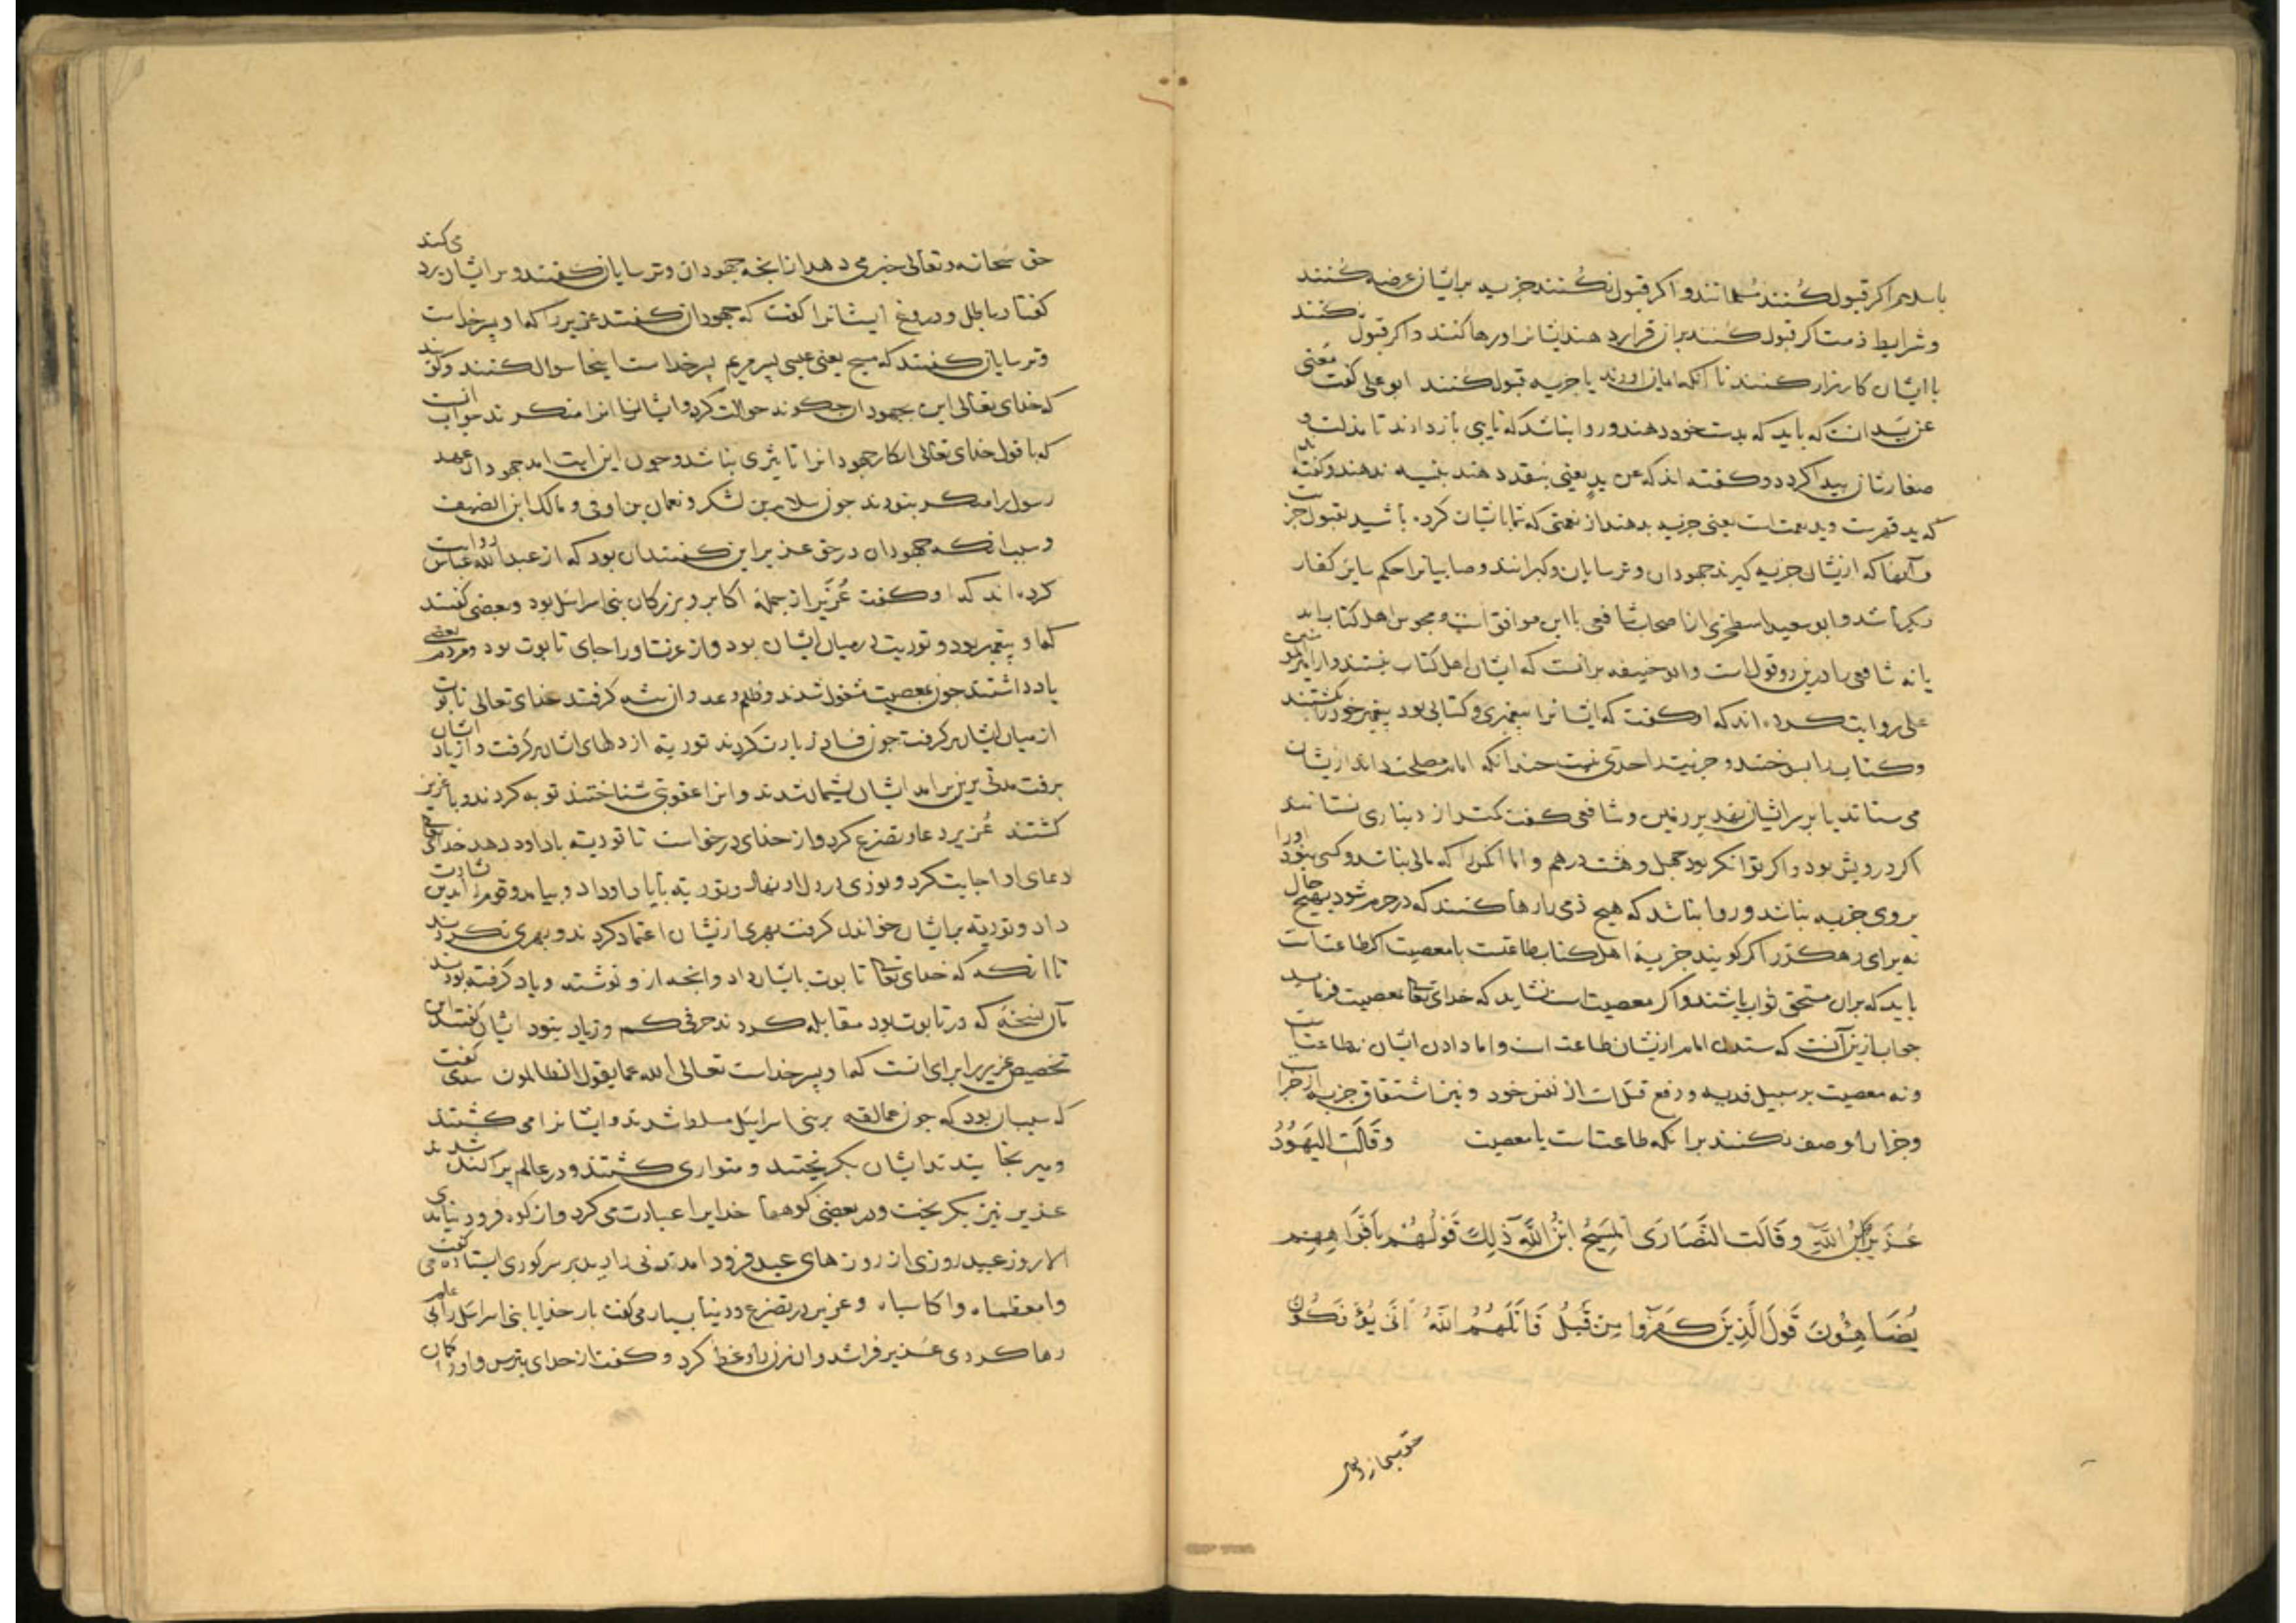 باسلام اکر قبول کُنند مُسلمانند و اکر قبول نکُنند جزیه بر ایشان عرضه کُنند
و شرایط ذمت اکر قبول کنند بران قرار دهند ایشانرا و رها کنند و اکر قبول نکنند
با ایشان کارزار کنند تا آنکه ایمان اورند یا جزیه قبول کنند ابو علی کفت معنی
عن یَدٍ انست که باید که بدست خود دهند و روا نباشد که نایبی بازدارند تا مذلت و
صغار ایشان پیدا کردد و کفته اند که عن یدٍ یعنی بنقد دهند بنسیه ندهند و کفته اند
که ید قهرست و ید نعمت است یعنی جزیه بدهند از نعمتی که شما با ایشان کرده باشید بقبول جزیت
و آنها که ازیشان جزیه کیرند جهودان و ترسایان و کبرانند و صابیانرا حکم سایر کفار
باشد و ابو سعید اسطخری از اصحاب شافعی با این موافق است و مجوس اهل کتاب اند
یا نه شافعی را درین دو قول است و ابو حنیفه برانست که ایشان اهل کتاب نیستند و از امیر المومنین
علی روایت کرده اند که او کفت که ایشانرا پیغمبری و کتابی بود پیغمبر خود را بکشتند
و کتاب را بسوختند و جزیت را حدی نیست چندانکه امام مصلحت داند ازیشان
می ستاند یا بر سر ایشان نهد یا بر زمین و شافعی کفت کمتر از دیناری نستانند
اکر درویش بود و اکر توانکر بود چهل و هشت درهم و اما انکس را که مالی نباشد و کسبی نبود او را
بر وی جزیه نباشد و روا نباشد که هیچ ذمی را رها کنند که در حرم شود بهیچ حال
نه برای رهکذر اکر کویند جزیه اهل کتاب طاعتست یا معصیت اکر طاعتست
باید که بران مستحق ثواب باشند و اکر معصیت است نشاید که خدای تعالی بمعصیت فرماید
جواب ازین آنست که ستدن امام ازیشان طاعت است و اما دادن ایشان نه طاعتست
و نه معصیت بر سبیل فدیه و دفع قتل است از نفس خود و نیز اشتقاق جزیه از جزا
و جزا را وصف نکنند برانکه طاعتست یا معصیت وَقَالَتِ الیَهُودُ
عُزَیرٌ ابْنُ اللَّهِ وَقَالَت النَّصَارَی الْمَسِیحُ ابْنُ اللَّهِ ذَلِكَ قَوْلُهُمْ بِأَفْوَاهِهِمْ
یُضَاهِئُونَ قَولَ الَّذِینَ کَفَرُوا مِن قَبْلُ قَاتَلَهُمُ اللَّهُ أَنَّی یُؤْفَکُونَ
حق سبحانه و تعالی
حق سبحانه و تعالی خبر می دهد ازانچه جهودان و ترسایان کفتند و بر ایشان رد می کند
کفتار باطل و دروغ ایشانرا کفت که جهودان کفتند عزیر را که او پسر خداست
و ترسایان کفتند که مسیح یعنی عیسی پسر مریم پسر خداست اینجا سوال کنند و کویند
که خدای تعالی این بجهودان چکونه حوالت کرد و ایشانرا انرا منکرند جواب انست
که با قول خدای تعالی انکار جهودانرا تاثیری نباشد و چون این ایت امد جهودان عهد
رسول را منکر نبودند چون سلام بن مشکم و نعمان بن اوفی و مالک ابن الضیف
و سبب انکه جهودان در حق عزیر این کفتند ان بود که از عبد الله عباس روایت
کرده اند که او کفت عُزَیر از جملهٔ اکابر و بزرکان بنی اسرائیل بود و بعضی کفتند
که او پیغمبر بود و توریت در میان ایشان بود و از عزت او را جای تابوت بود و مردم بعضی
یاد داشتند چون بمعصیت مشغول شدند و ظلم و عدوان پیشه کرفتند خدای تعالی تابوت
از میان ایشان برکرفت چون فساد زیادت کردند توریة از دلهای ایشان برکرفت و از یاد ایشان
برفت مدتی برین برامد ایشان پشیمان شدند و انرا عقوبتی شناختند توبه کردند و با عزیر
کفتند عُزیر دعا و تضرع کرد و از خدای درخواست تا توریة باد او دهد خدای تعالی
دعای او اجابت کرد و نوری در دل او نهاد و توریة بایاد او داد و بیامد و قوم را بدین بشارت
داد و توریة بر ایشان خواندن کرفت بهری ازیشان اعتماد کردند و بهری نکردند
تا انکه که خدای تعالی تابوت با ایشان داد و انچه ازو نوشتند و یاد کرفته بودند
بآن نسخهٔ که در تابوت بود مقابله کردند حرفی کم و زیاد نبود ایشان کفتند این
تخصیص عزیر را برای انست که او پسر خداست تعالی الله عما یقول الظالمون سدی کفت
که سبب ان بود که چون عمالقه بر بنی اسرائیل مسلط شدند و ایشانرا می کشتند
و می رنجانیدند ایشان بکریختند و متواری کشتند و در عالم پراکنده شدند
عزیر نیز بکریخت و در بعضی کوهها خدایرا عبادت می کرد و از کوه فرود نیامدی
الا روز عید روزی از روزهای عید فرود امد زنی را دید بر سر کوری ایستاده می کفت
وا مطعماه وا کاسیاه و عزیر در تضرع و دعا بسیار می کفت بار خدایا بنی اسرائیل را بی عالم
رها کردی عُزیر فراشد و ان زن را وعظ کرد و کفت از خدای بترس و او را